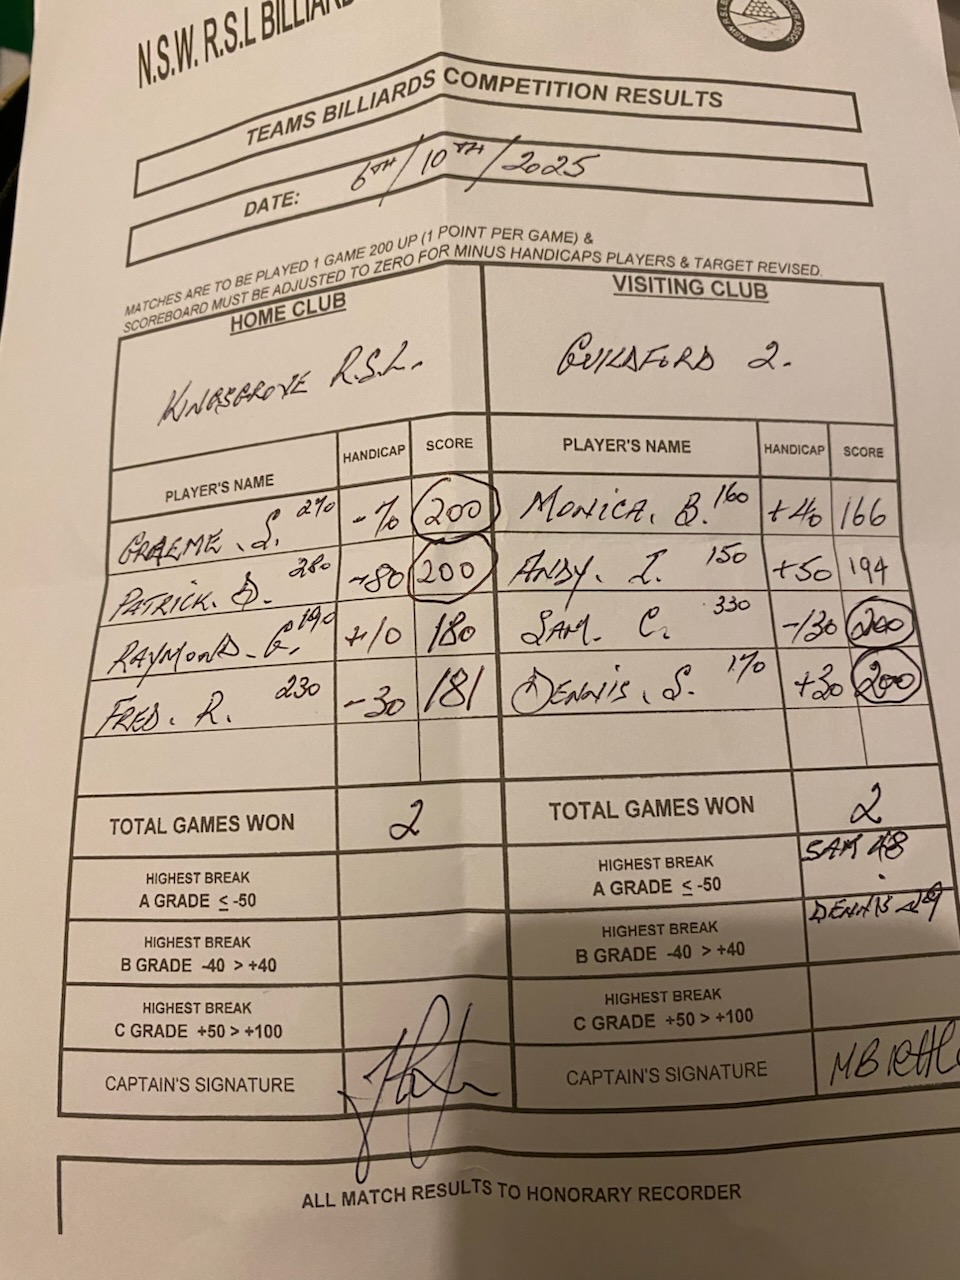 N.S.W. R.S.L BILLIARD
TEAMS BILLIARDS COMPETITION RESULTS
DATE: 6TH/10TH/2025
MATCHES ARE TO BE PLAYED 1 GAME 200 UP (1 POINT PER GAME) &
SCOREBOARD MUST BE ADJUSTED TO ZERO FOR MINUS HANDICAPS PLAYERS & TARGET REVISED.
HOME CLUB VISITING CLUB
KINGSGROVE R.S.L. GUILDFORD 2.
PLAYER'S NAME HANDICAP SCORE PLAYER'S NAME HANDICAP SCORE
GRAEME. S. 270 -70 200 MONICA. B. 160 +40 166
PATRICK. D. 280 -80 200 ANDY. I. 150 +50 194
RAYMOND. G. 190 +10 180 SAM. C. 330 -130 200
FRED. R. 230 -30 181 DENNIS. S. 170 +30 200
TOTAL GAMES WON 2 TOTAL GAMES WON 2
HIGHEST BREAK HIGHEST BREAK SAM 48
A GRADE ≤ -50 A GRADE ≤ -50
HIGHEST BREAK HIGHEST BREAK DENNIS 29
B GRADE -40 > +40 B GRADE -40 > +40
HIGHEST BREAK HIGHEST BREAK
C GRADE +50 > +100 C GRADE +50 > +100
CAPTAIN'S SIGNATURE CAPTAIN'S SIGNATURE
ALL MATCH RESULTS TO HONORARY RECORDER